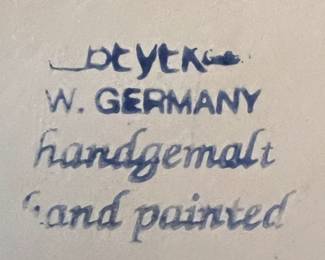 W. GERMANY
handgemalt
hand painted